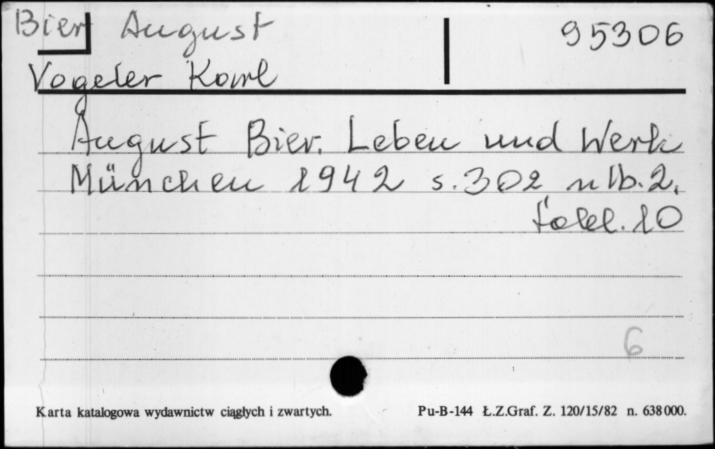 Bier August 95306
Vogeler Karl
August Bier. Leben und Werk
München 1942 s. 302 nlb. 2,
tabl. 10
6
Karta katalogowa wydawnictw ciągłych i zwartych. Pu-B-144 Ł.Z.Graf. Z. 120/15/82 n. 638000.